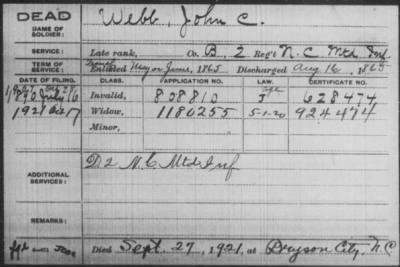 DEAD
NAME OF SOLDIER:
Webb, John C.
SERVICE: Late rank, Co. B, 2 Reg't N.C. Mtd. Inf.
TERM OF SERVICE: Enlisted May or June, 1865 Discharged Aug 16, 1865
DATE OF FILING. CLASS. APPLICATION NO. CERTIFICATE NO.
1890 July Invalid, 808810 628474
1921 Oct 17 Widow, 1180255 5-1-20 924474
Minor,
ADDITIONAL SERVICES:
D. 2 N.C. Mtd Inf
REMARKS:
Died Sept. 27, 1921, at Bryson City, N.C.